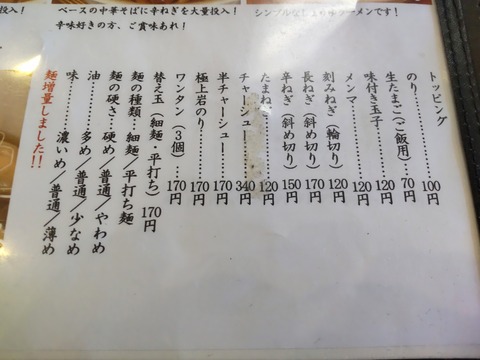 ベースの中華そばに辛ねぎを大量投入！
辛味好きの方、ご賞味あれ！
シンプルなしょうゆラーメンです！
トッピング
のり……………100円
生たまご（ご飯用）70円
味付き玉子………120円
メンマ……………120円
刻みねぎ（輪切り）120円
長ねぎ（斜め切り）170円
辛ねぎ（斜め切り）150円
たまねぎ…………120円
チャーシュー……340円
半チャーシュー…170円
極上岩のり………170円
ワンタン（3個）…170円
替え玉（細麺・平打ち）170円
麺の種類…細麺／平打ち麺
麺の硬さ…硬め／普通／やわめ
油…多め／普通／少なめ
味…濃いめ／普通／薄め
麺増量しました!!